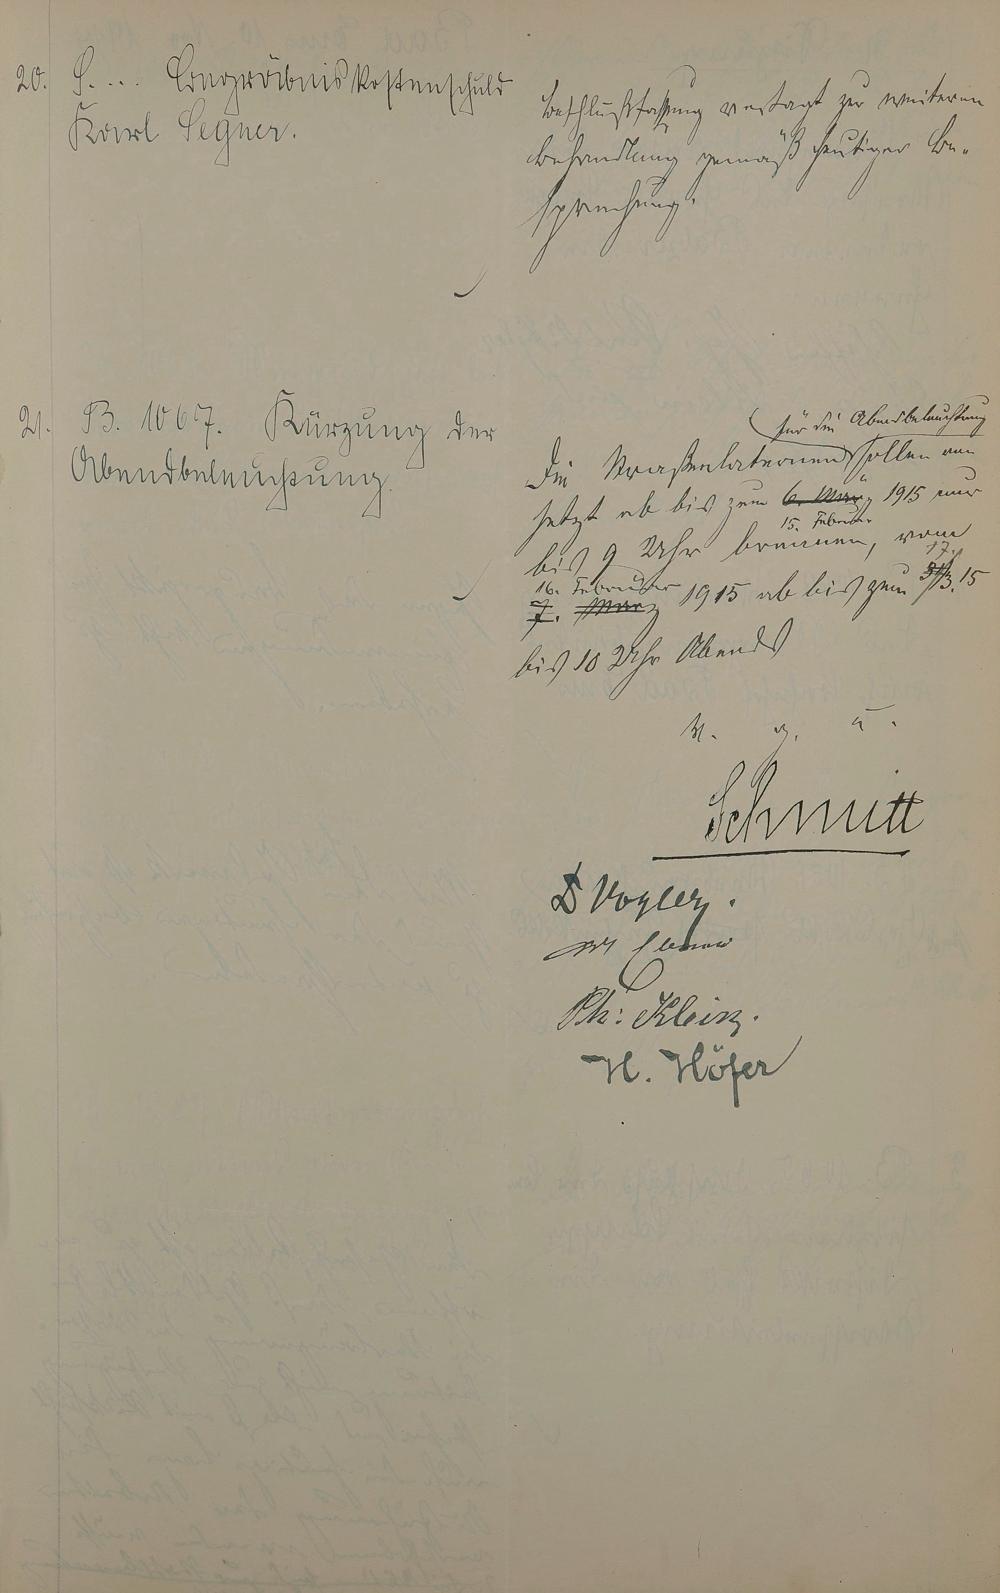 20. S. ... Begräbniskostenschuld
Karl Segner.
Beschlußfassung vertagt zur weiteren
Behandlung gemäß heutiger Be-
sprechung.
21. B. 1067. Kürzung der
Abendbeleuchtung.
für die Abendbeleuchtung
Die Straßenlaternen sollen von
jetzt ab bis zum 6. März 1915 nur
15. Februar
bis 9 Uhr brennen, vom
16. Februar 17.
7. März 1915 ab bis zum 31/3. 15
bis 10 Uhr Abends
v. g. u.
Schmitt
Vogler.
Ph: Klein.
H. Höfer